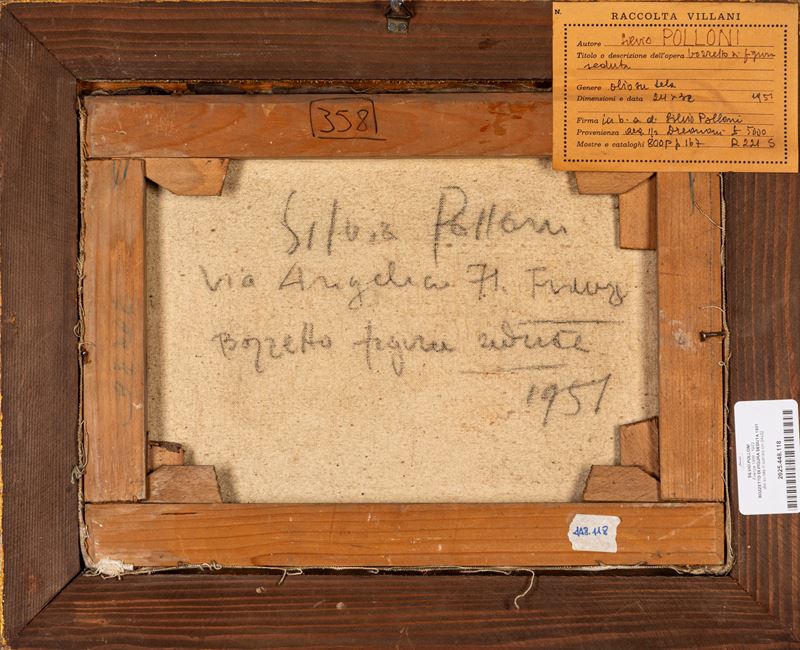 N.
RACCOLTA VILLANI
Autore Silvio POLLONI
Titolo o descrizione dell'opera bozzetto di figura
seduta
Genere olio su tela
Dimensioni e data 24 x 32 1951
Firma in b. a d. Silvio Polloni
Provenienza £ 5000
Mostre e cataloghi 800 p 167 R 221 S
358
Silvio Polloni
Via Angelica 71. Firenze
Bozzetto figura seduta
1951
SILVIO POLLONI
BOZZETTO DI FIGURA SEDUTA 1951
2025.448.118
448.118